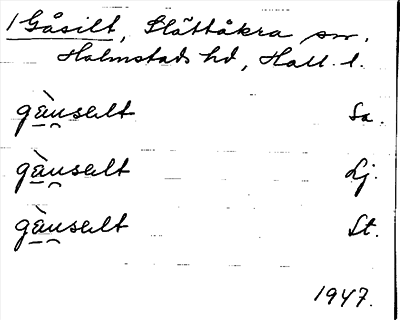 1 Gåsilt, Slättåkra sn.
Halmstads hd, Hall. l.
gàu̯sılt Sa.
gàu̯sılt Lj.
gàu̯sılt St.
1947.